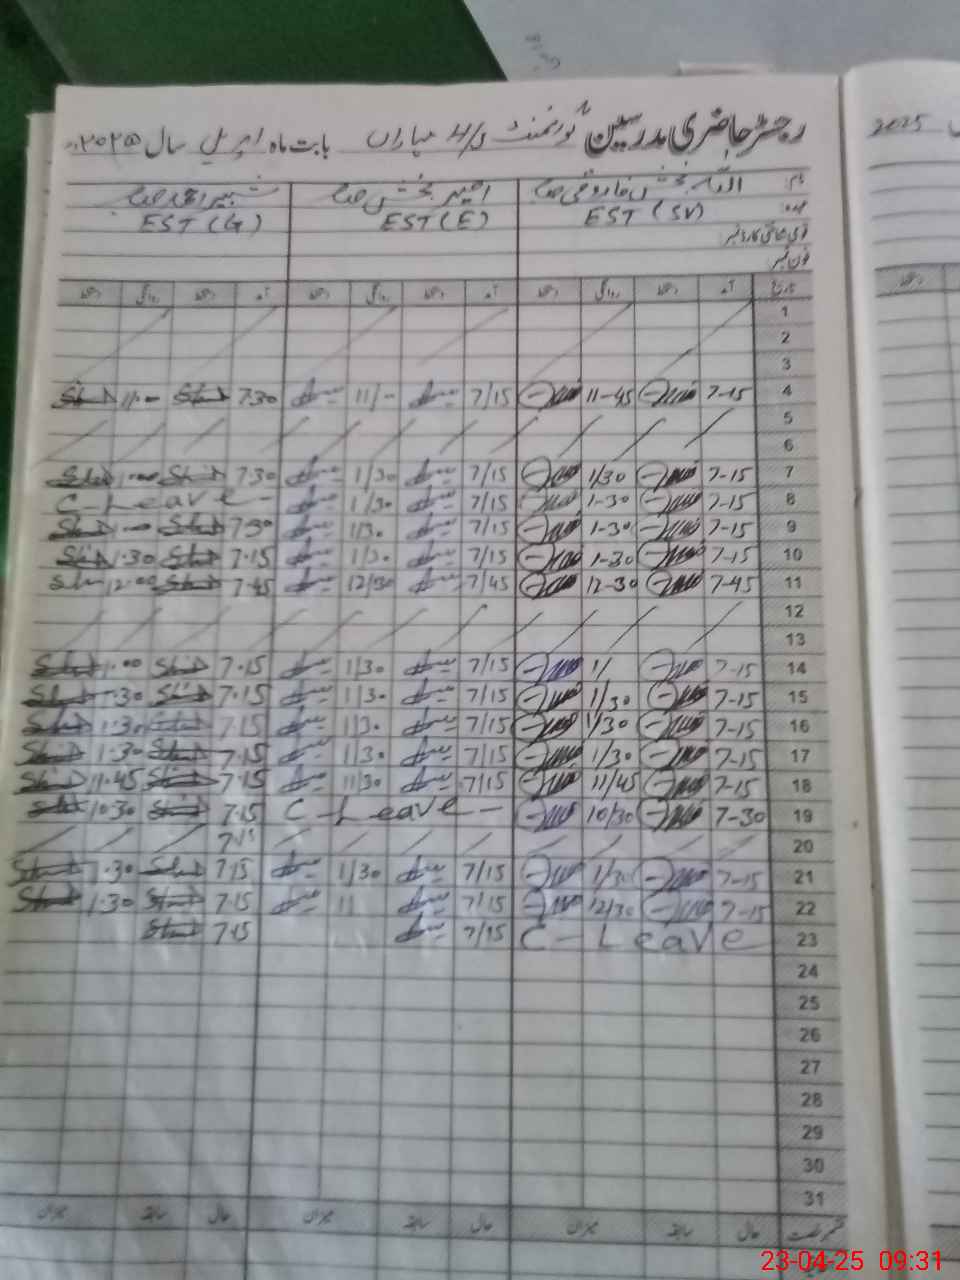 رجسٹر حاضری مدرسین گورنمنٹ ہائی بابت ماہ اپریل سال ۲۰۲۵ء
2025
نام اللہ بخش فاروقی صاحب امیر بخش صاحب شبیر احمد صاحب
عہدہ EST (SV) EST (E) EST (G)
قومی شناختی کارڈ نمبر
فون نمبر
تاریخ آمد دستخط روانگی دستخط آمد دستخط روانگی دستخط آمد دستخط روانگی دستخط
1
2
3
4 7-15 11-45 7/15 11/- 7.30 11.00
5
6
7 7-15 1/30 7/15 1/30 7.30
8 7-15 1-30 7/15 1/30 C-Leave-
9 7-15 1-30 7/15 1/30 7.30
10 7-15 1-30 7/15 1/30 7.15 1.30
11 7-45 12-30 7/45 12/30 7.45 12.00
12
13
14 7-15 1/ 7/15 1/30 7.15 1.00
15 7-15 1/30 7/15 1/30 7.15 1.30
16 7-15 1/30 7/15 1/30 7.15 1.30
17 7-15 1/30 7/15 1/30 7.15 1.30
18 7-15 11/45 7/15 11/30 7.15 11.45
19 7-30 10/30 C-Leave- 7.15 10.30
20 7.15
21 7-15 1/30 7/15 1/30 7.15 1.30
22 7-15 12/30 7/15 11 7.15 1.30
23 C-Leave 7/15 7.15
24
25
26
27
28
29
30
31
حال سابقہ میزان حال سابقہ میزان حال سابقہ میزان
23-04-25 09:31